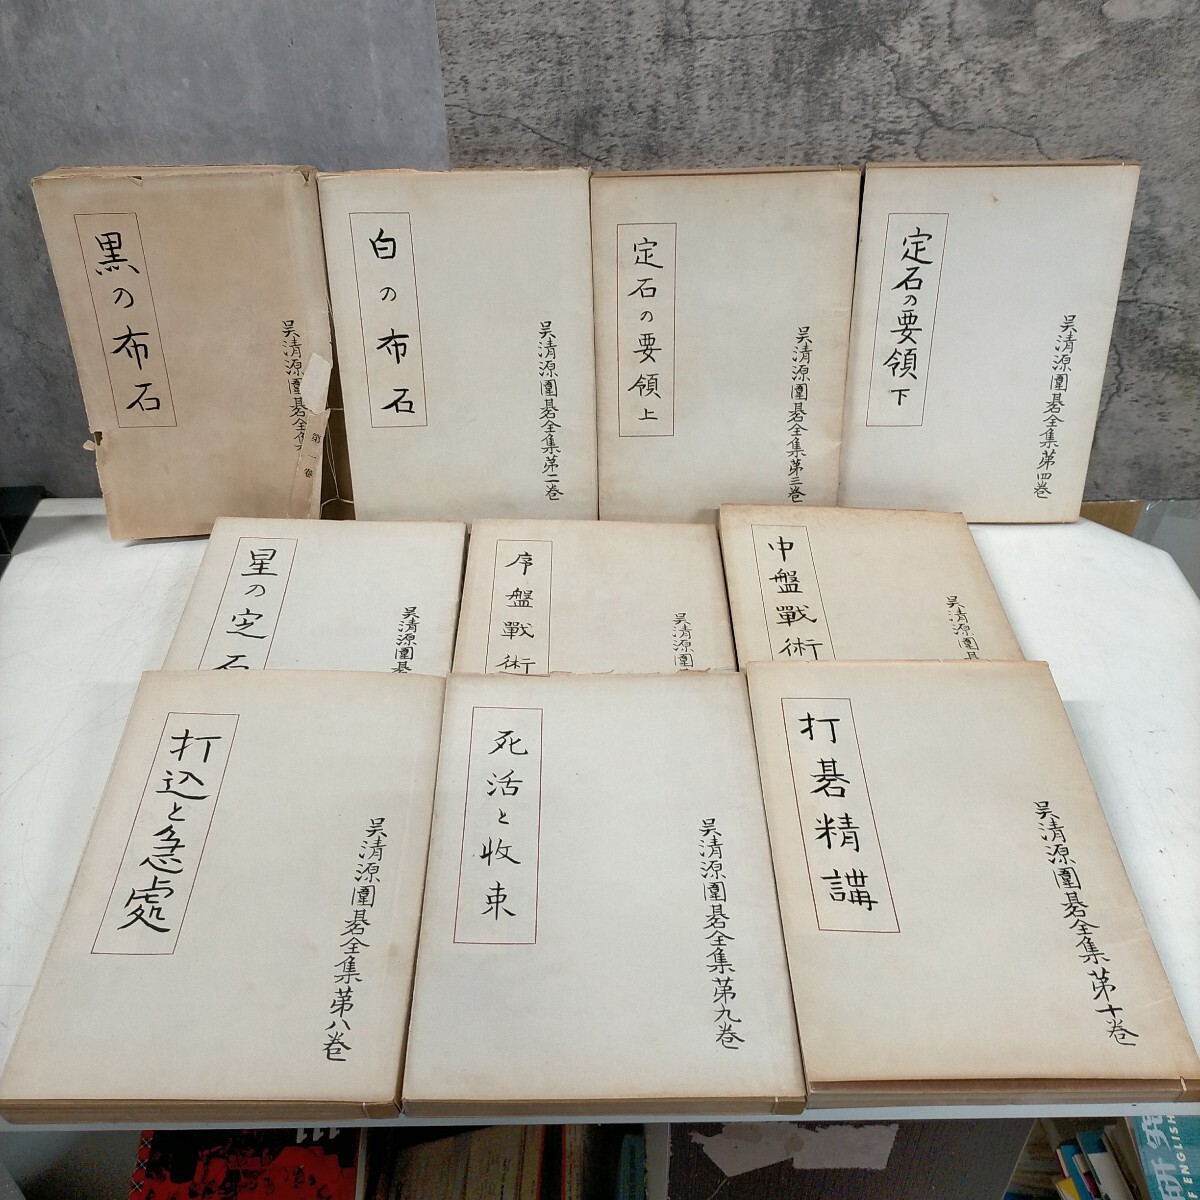 黒の布石
呉清源圍碁全集
第一卷
白の布石
呉清源圍碁全集第二巻
定石の要領上
呉清源圍碁全集第三巻
定石の要領下
呉清源圍碁全集第四巻
星の定石
呉清源圍碁
序盤戰術
呉清源圍
中盤戰術
呉清源圍
打込と急處
呉清源圍碁全集第八巻
死活と收束
呉清源圍碁全集第九巻
打碁精講
呉清源圍碁全集第十巻
ENGLISH